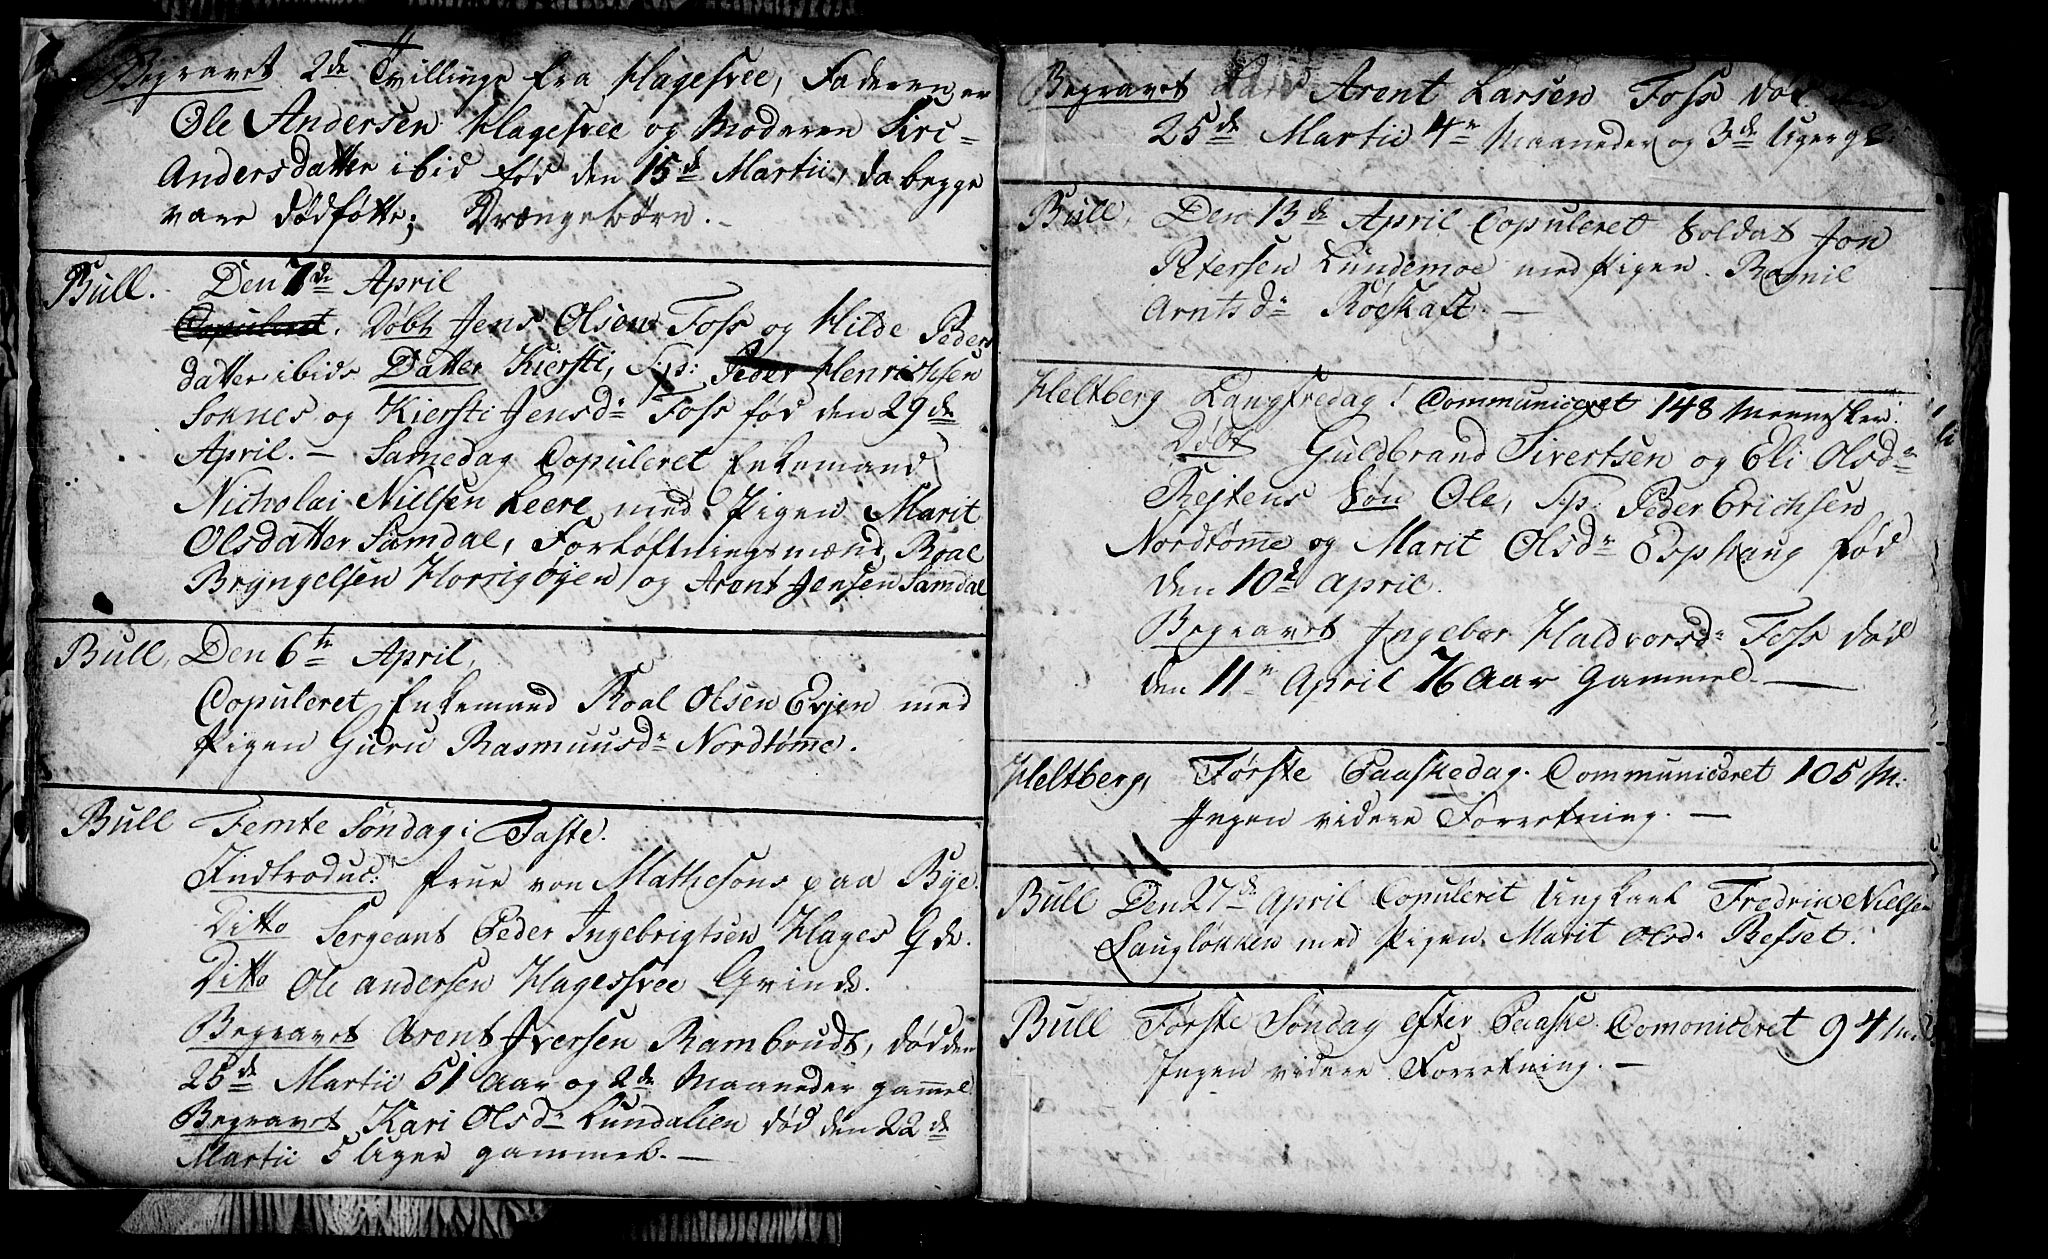 Begravet 2de Tvillinge fra Hagesvee, Faderen er
Ole Andersen Hagesvee og Moderen Siri
Andersdatter ibid fød den 15de Martii, da begge
vare dødføtte; Drængebørn.
Bull. Den 7de April
Copuleret. Døbt Jens Olsen Foss og Hilde Peders
datter ibid: Datter Kiersti, Sp: Peder Henrichsen
Soknes og Kiersti Jensdr Foss fød den 29de
April. — Samedag Copuleret Enkemand
Nicholai Nielsen Leere med Pigen Marit
Olsdatter Samdal, Forløftningsmænd Roal
Bryngelsen Horrigøyen og Arent Jensen Samdal
Bull, Den 6te April,
Copuleret Enkemand Roal Olsen Evjen med
Pigen Guru Rasmuusdr Nordtømme.
Bull Femte Søndag i Faste.
Indtroduc: Frue von Mathesons paa Bye.
Ditto Sergeant Peder Ingebrigtsen Hages Qde.
Ditto Ole Andersen Hagessvee Qvinde.
Begravet Arent Iversen Rambrudt, død den
25de Martii 51 Aar og 2de Maaneder gammel
Begravet Kari Olsdr Lundalien død den 22de
Martii 5 Uger gammel. —
Begravet Arent Larsen Foss død
25de Martii 4re Maaneder og 3de Uger gl:
Bull, Den 13de April Copuleret Soldat Jon
Petersen Lundemoe med Pigen Ragnil
Arntsdr Røeskaft. —
Heltberg Langfredag! Communiceret 148 Mennesker.
Døbt Guldbrand Sivertsen og Eli Olsdr
Rejtens Søn Ole, Sp: Peder Erichsen
Nordtømme og Marit Olsdr Esphaug fød
den 10de April.
Begravet Ingebor Haldvorsdr Foss død
den 11te April 76 Aar gammel. —
Heltberg, Første Paaskedag. Communiceret 105 M:
Ingen videre Forretning. —
Bull Den 27de April Copuleret Ungkarl Fredric Nielsen
Laugløkken med Pigen Marit Olsdr Refset.
Bull Første Søndag efter Paaske Comoniceret 94 M:
Ingen videre Forretning. —